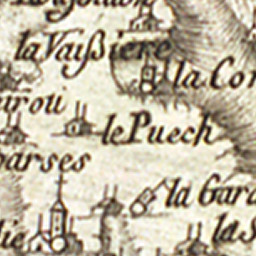 la Vaißiere
la Con
irou
le Puech
arses
la Gara
la S